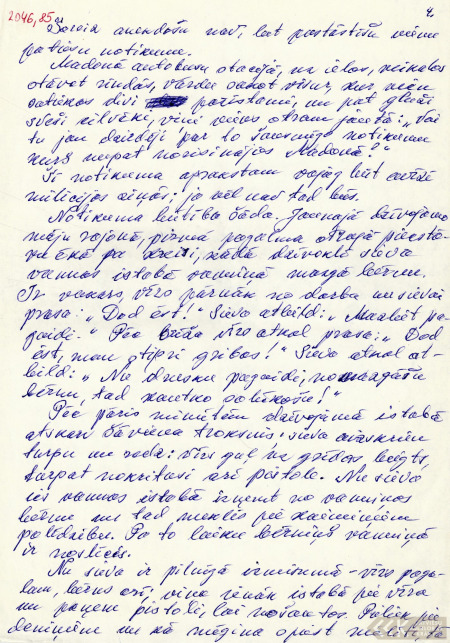 2046,85
4
Šoreiz anekdošu nav, bet pastāstīšu vienu
patiesu notikumu.
Madonā autobusu stacijā, uz ielas, veikalos
stāvot rindās, vārdu sakot visur, kur vien
satiekas divi pazīstami, un pat gluži
sveši cilvēki, viņi viens otram jautā: „Vai
tu jau dzirdēji par to šausmīgo notikumu
kurš nupat norisinājās Madonā?"
Šī notikuma aprakstam vajag būt arī
milicijas ziņās; ja vēl nav tad būs.
Notikuma būtība šāda. Jaunajā dzīvojamo
māju rajonā, pirmā pagalma otrajā piecstā-
vu ēkā pa kreisi, kādā dzīvoklī sieva
vannas istabā vanniņā mazgā bērnu.
Ir vakars, vīrs pārnāk no darba un sievai
prasa: „Dod ēst!" Sieva atbild: „Mazliet pa-
gaidi." Pēc brīža vīrs atkal prasa: „Dod
ēst, man stipri gribas!" Sieva atkal at-
bild: „Nu drusku pagaidi, nomazgāšu
bērnu, tad kautko salikšu!"
Pēc pāris minūtēm dzīvojamā istabā
atskan šāviena troksnis: sieva aizskrien
turpu un redz: vīrs guļ uz grīdas beigts,
turpat nokritusi arī pistole. Nu sieva
vannas istabā izņemt no vanniņas
bērnu un tad meklēs pie kaimiņiem
palīdzību. Pa to laiku bērniņš vanniņā
ir noslīcis.
Nu sieva ir pilnīgā izmisumā - vīrs paga-
lam, bērns arī, viņa ienāk istabā pie vīra
un paņem pistoli, lai nošautos. Pieliek pie
deniņiem un kā mēģina spiest